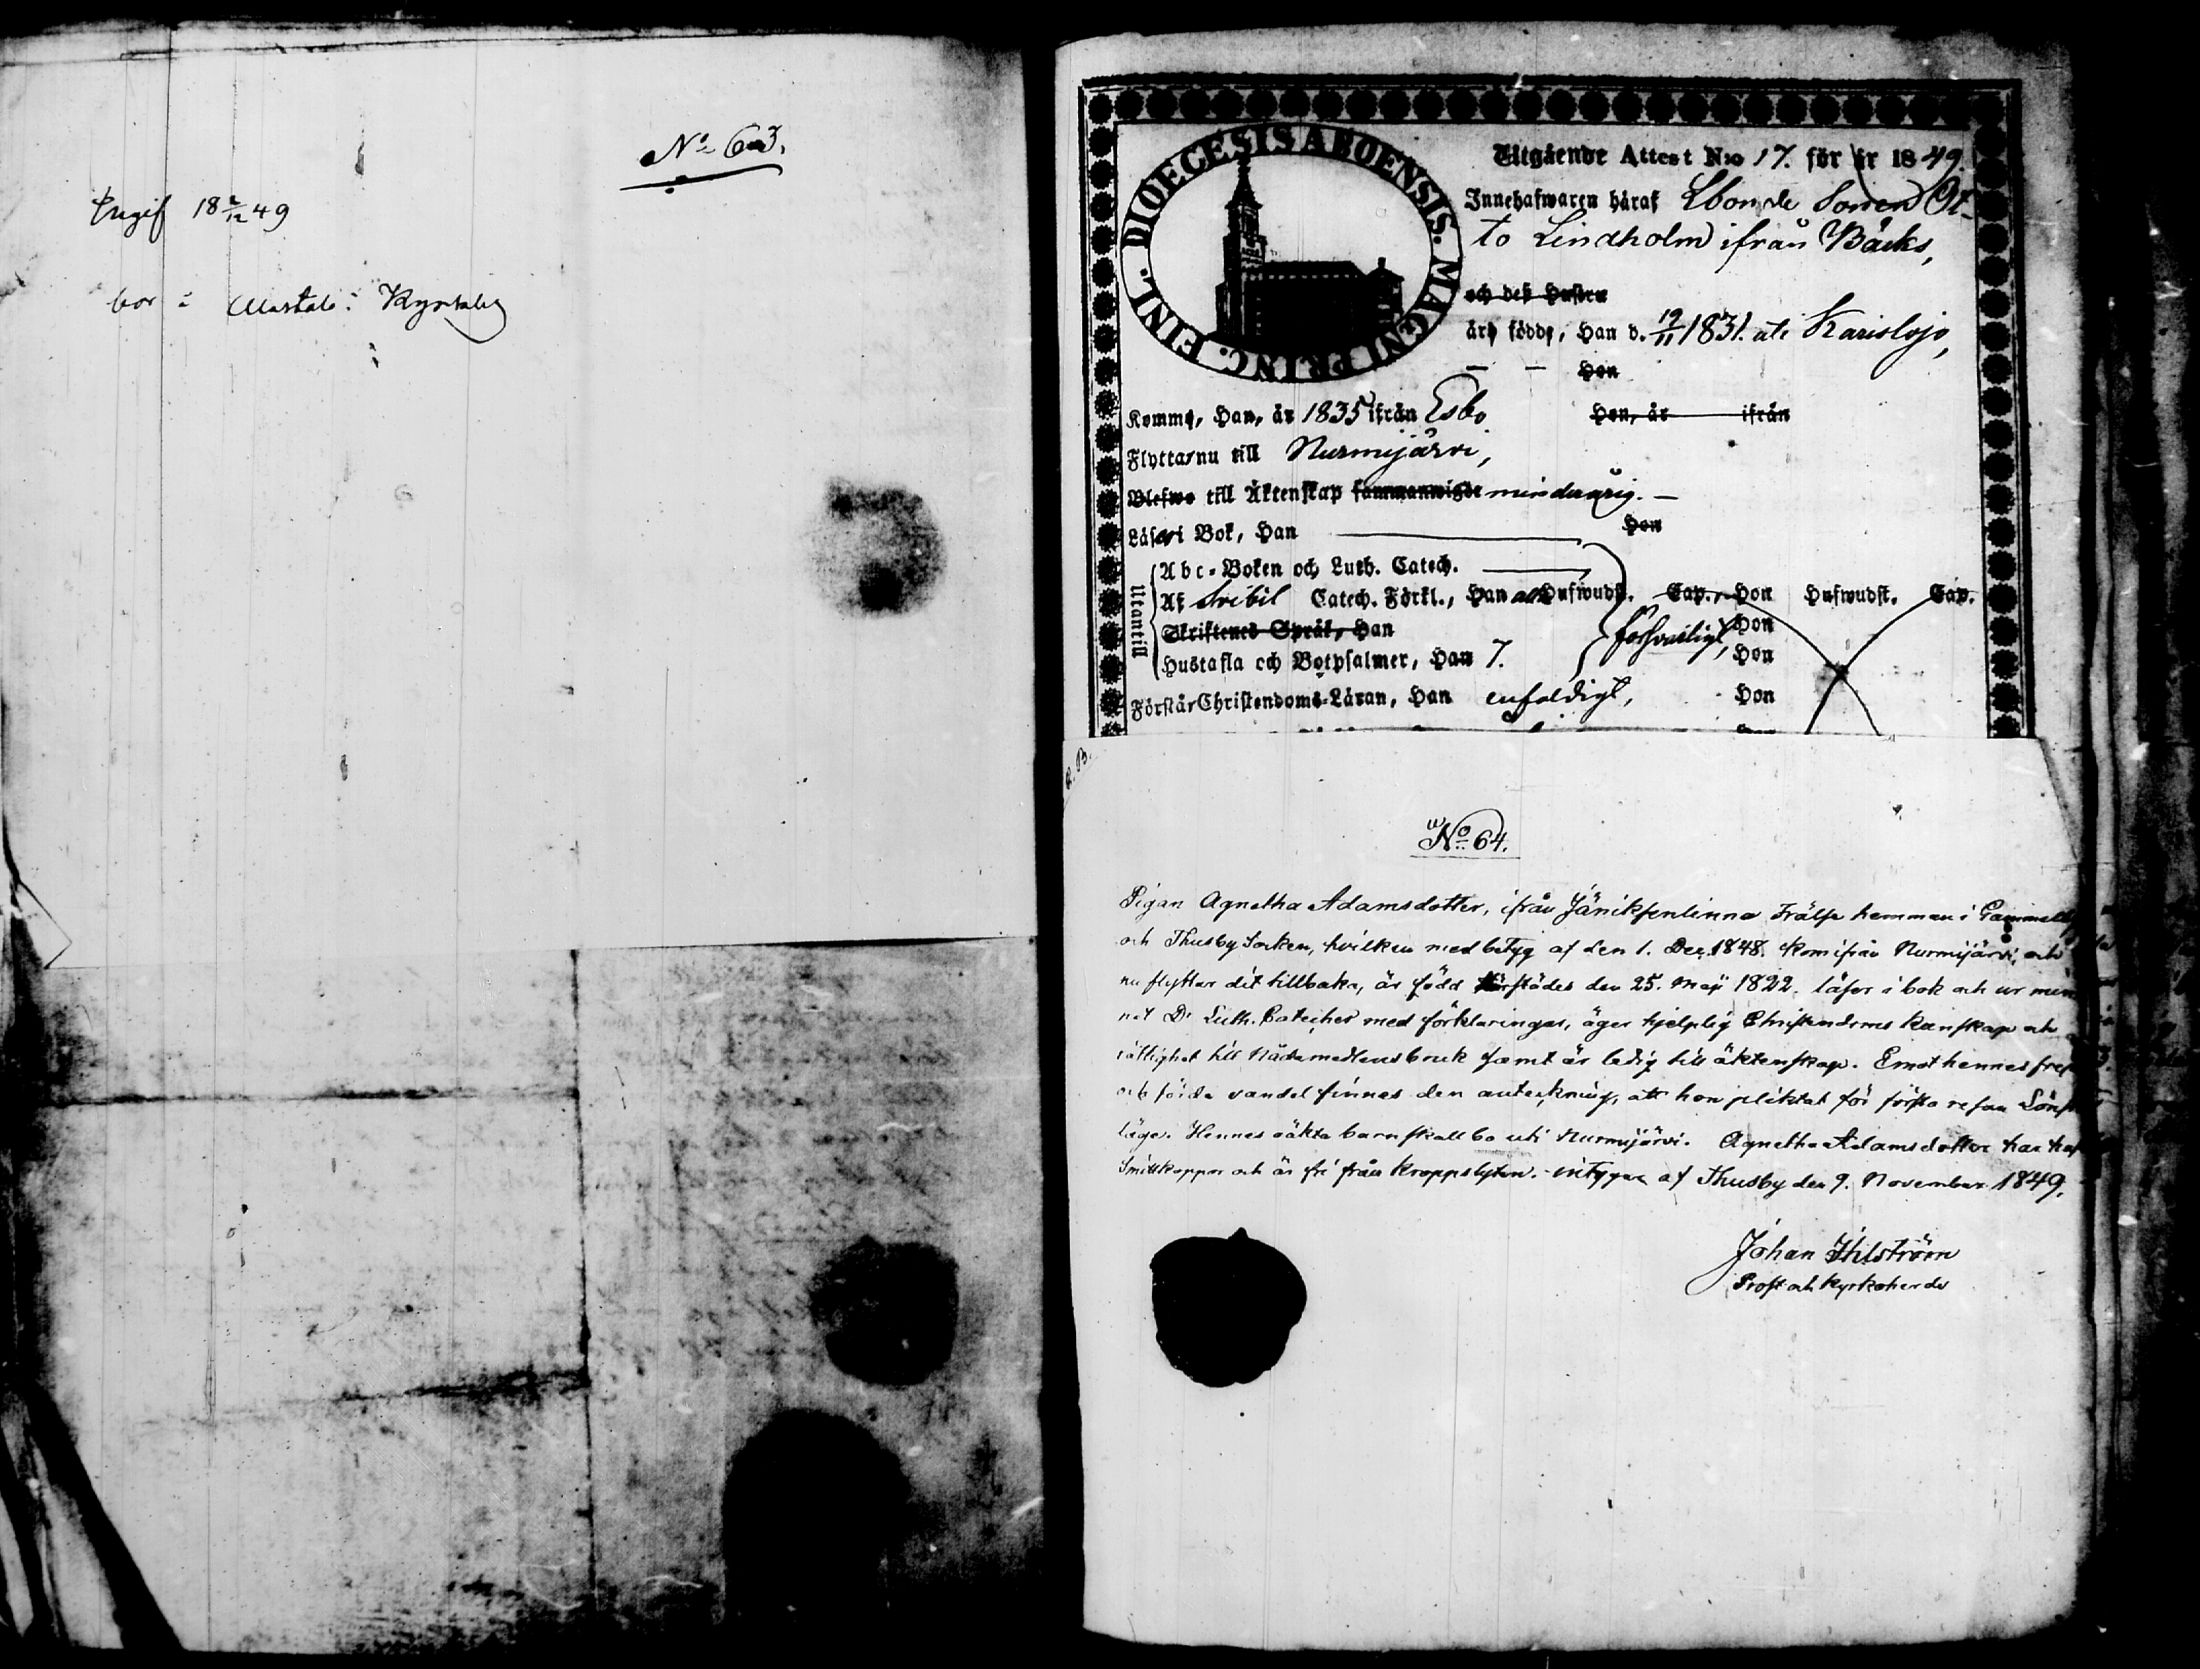 No 63.
Ingif 18 2/12 49
bor i Kyrkoby
DIOECESIS ABOENSIS. MAGNI PRINC. FINL.
Utgående Attest N:o 17. för år 1849.
Innehafwaren häraf Ebonde Sonen Ot-
to Lindholm ifrån Bäcks,
och deß Hustru
äro födde, Han d. 19/11 1831. uti Karislojo,
— — Hon
Komme, Han, år 1835 ifrån Esbo Hon, år ifrån
Flyttar nu till Nurmijärvi,
Blefwo till Äktenskap sammanwigde minderårig. —
Läser i Bok, Han Hon
Utantill
Abc-Boken och Luth. Catech.
Af Svebil Catech. Förkl., Han all Hufwudst. Cap., Hon Hufwudst. Cap.
Skriftenes Språk, Han försvarligt, Hon
Hustafla och Botpsalmer, Han 7. Hon
Förstår Christendoms-Läran, Han enfaldigt, Hon
No 64.
Pigan Agnetha Adamsdotter, ifrån Jäniksenlinna Frälse hemman i Gammelby
och Thusby Socken, hvilken med betyg af den 1. Dec. 1848. kom ifrån Nurmijärvi, och
nu flyttar dit tillbaka, är född härstädes den 25. Maji 1822. läser i bok och ur min
net Dr Luth. Cateches med förklaringar, äger hjelplig Christendoms kunskap och
rättighet till Nådemedlens bruk samt är ledig till äktenskap. Emot hennes frej
och förda vandel finnes den anteckning, att hon pliktat för första resan Lönska
läge. Hennes oäkta barn skall bo uti Nurmijärvi. Agnetha Adamsdotter har haft
Smittkoppor och är fri från kroppslyten. intygar af Thusby den 9. November 1849.
Johan Ihlström
Prost och Kyrkoherde